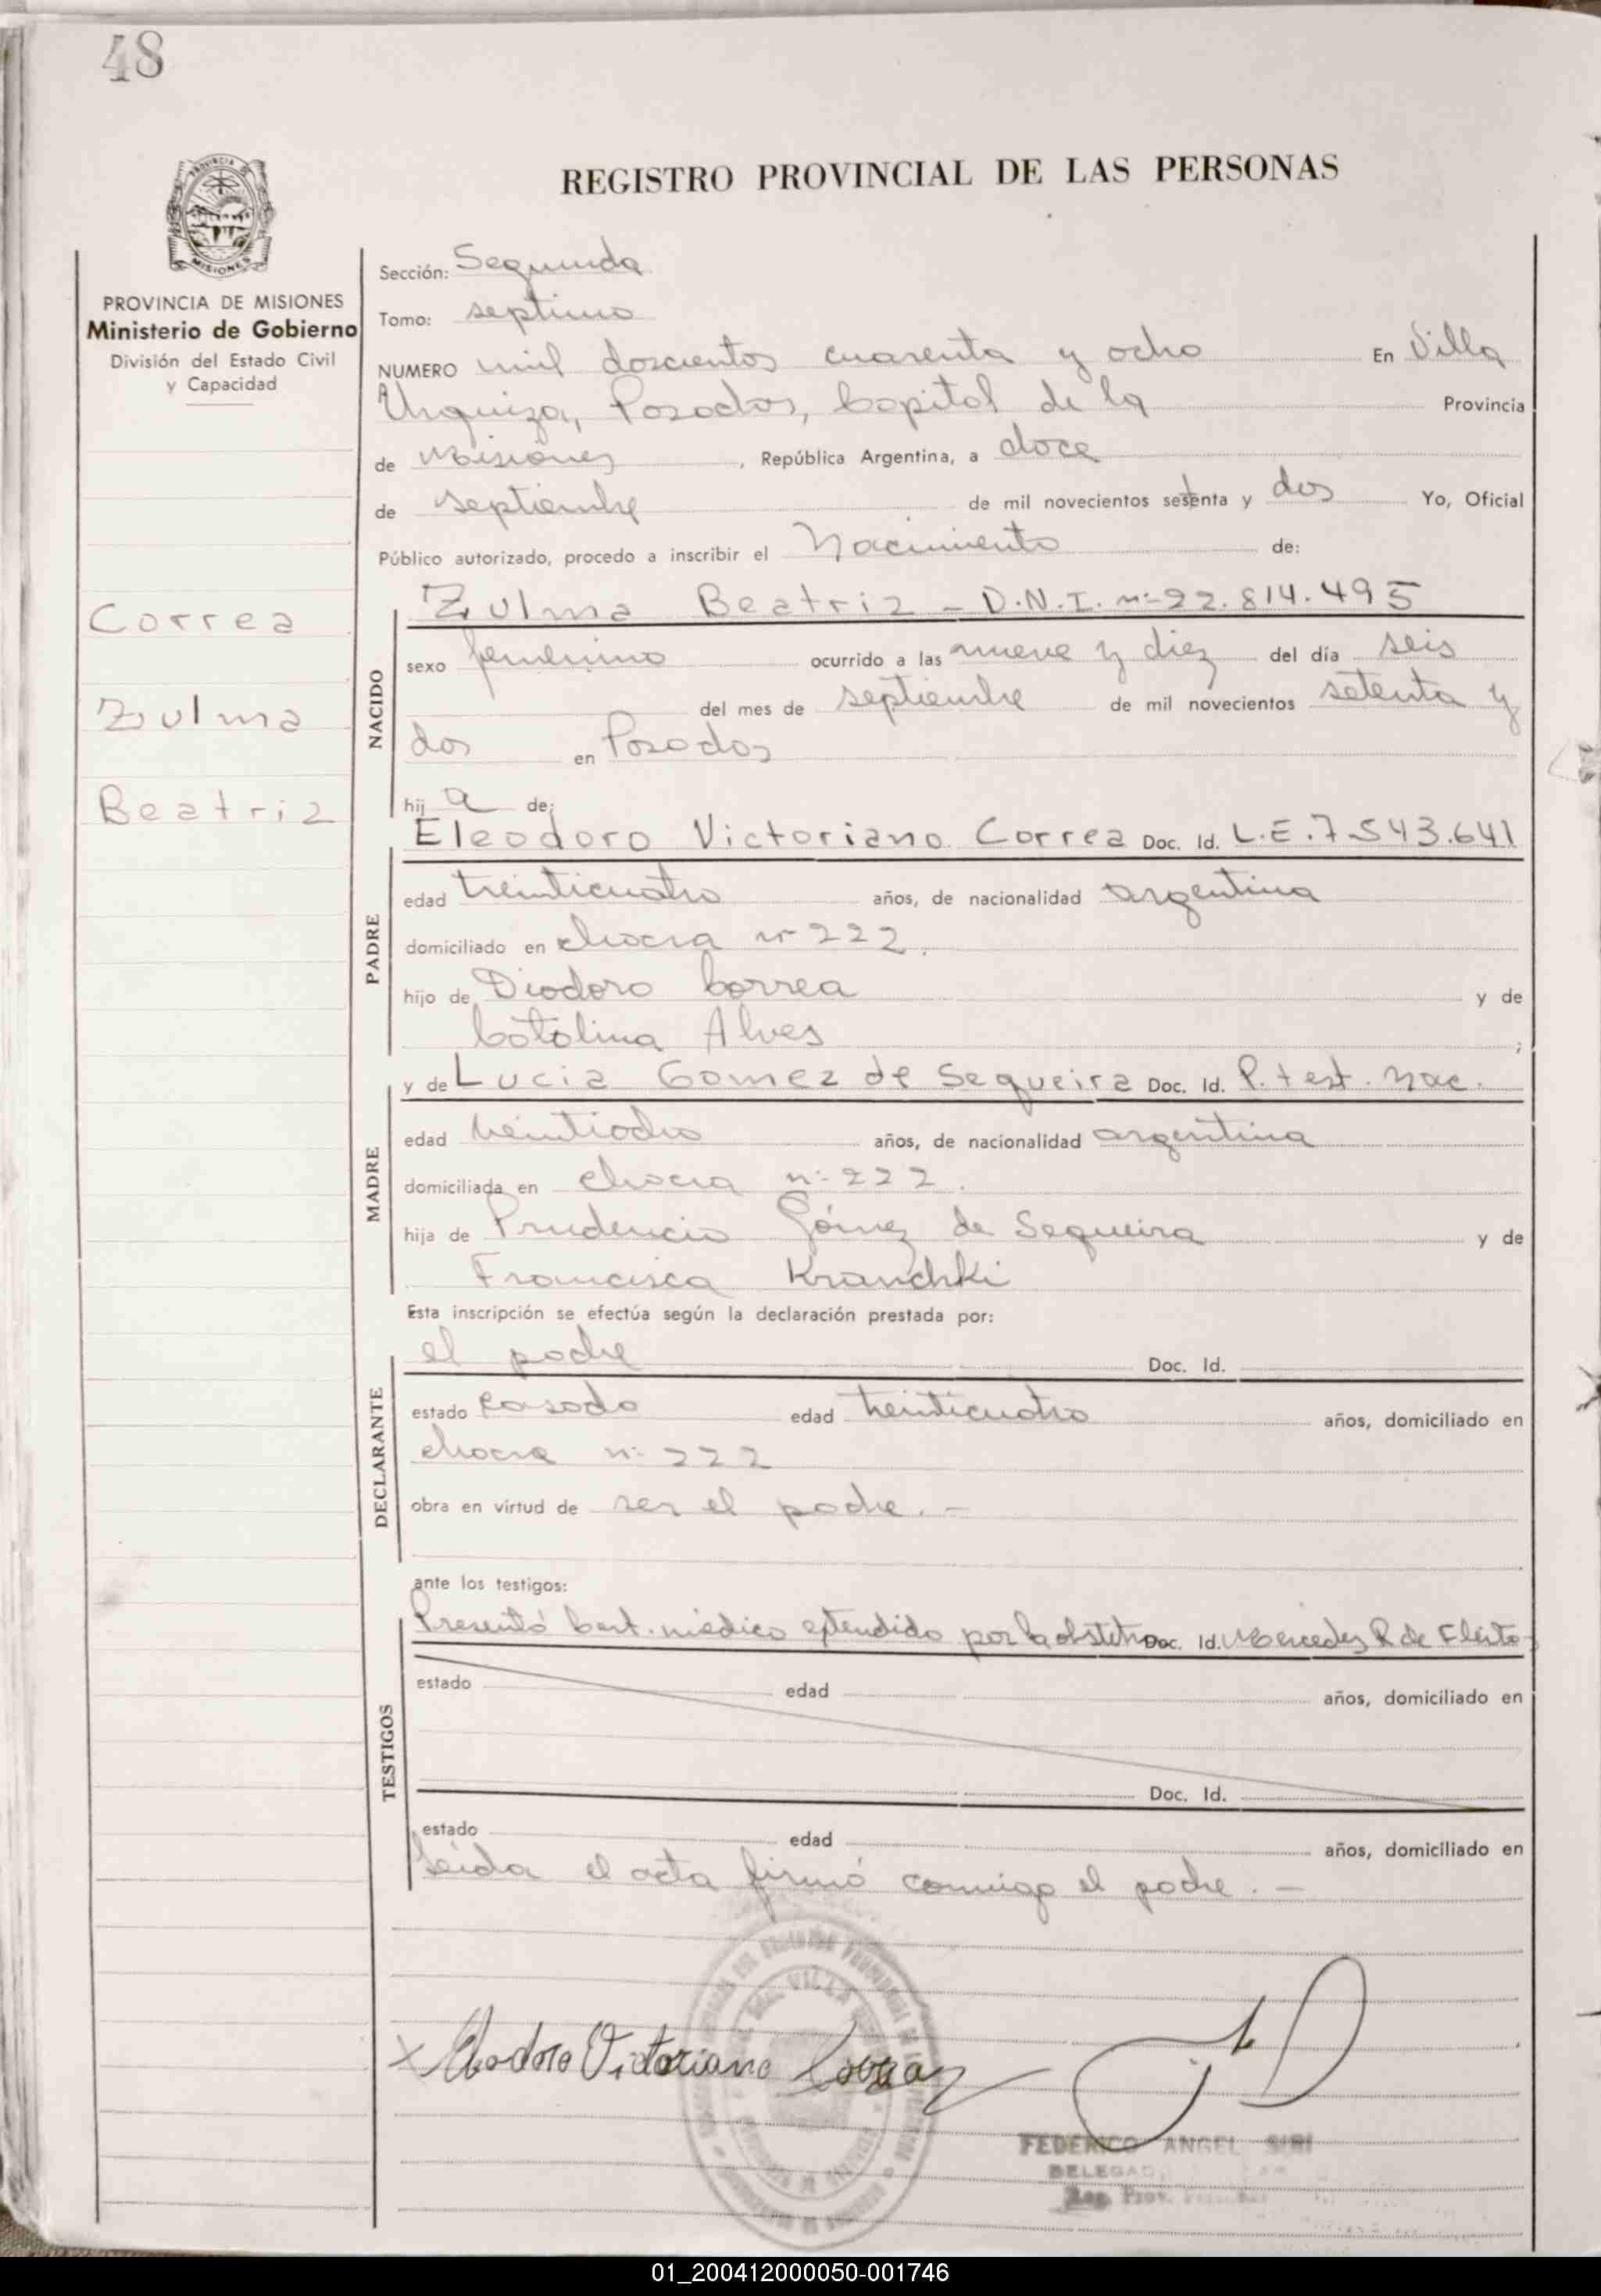 48
REGISTRO PROVINCIAL DE LAS PERSONAS
MISIONES
PROVINCIA DE MISIONES
Ministerio de Gobierno
División del Estado Civil
y Capacidad
Correa
Zulma
Beatriz
Sección: Segunda
Tomo: septimo
NUMERO mil doscientos cuarenta y ocho En Villa
Urquiza, Posadas, Capital de la Provincia
de Misiones, República Argentina, a doce
de septiembre de mil novecientos setenta y dos Yo, Oficial
Público autorizado, procedo a inscribir el Nacimiento de:
NACIDO
Zulma Beatriz - D.N.I. nº 22.814.495
sexo femenino ocurrido a las nueve y diez del día seis
del mes de septiembre de mil novecientos setenta y
dos en Posadas
hija de:
PADRE
Eleodoro Victoriano Correa Doc. Id. L.E. 7.543.641
edad treinticuatro años, de nacionalidad argentina
domiciliado en chacra nº 222.
hijo de Diodoro Correa y de
Catalina Alves ;
MADRE
y de Lucia Gomez de Sequeira Doc. Id. P. test. nac.
edad veintiocho años, de nacionalidad argentina
domiciliada en chacra nº 222.
hija de Prudencio Gómez de Sequeira y de
Francisca Kranchki
Esta inscripción se efectúa según la declaración prestada por:
DECLARANTE
el padre Doc. Id.
estado casado edad treinticuatro años, domiciliado en
chacra nº 222
obra en virtud de ser el padre. -
ante los testigos:
TESTIGOS
Presentó Cert. médico extendido por la obstetra Doc. Id. Mercedes R de
estado edad años, domiciliado en
Doc. Id.
estado edad años, domiciliado en
Leída el acta firmó conmigo el padre. -
x Eleodoro Victoriano Correa
VILLA
FEDERICO ANGEL SIRI
DELEGADO
Reg. Prov.
01_200412000050-001746